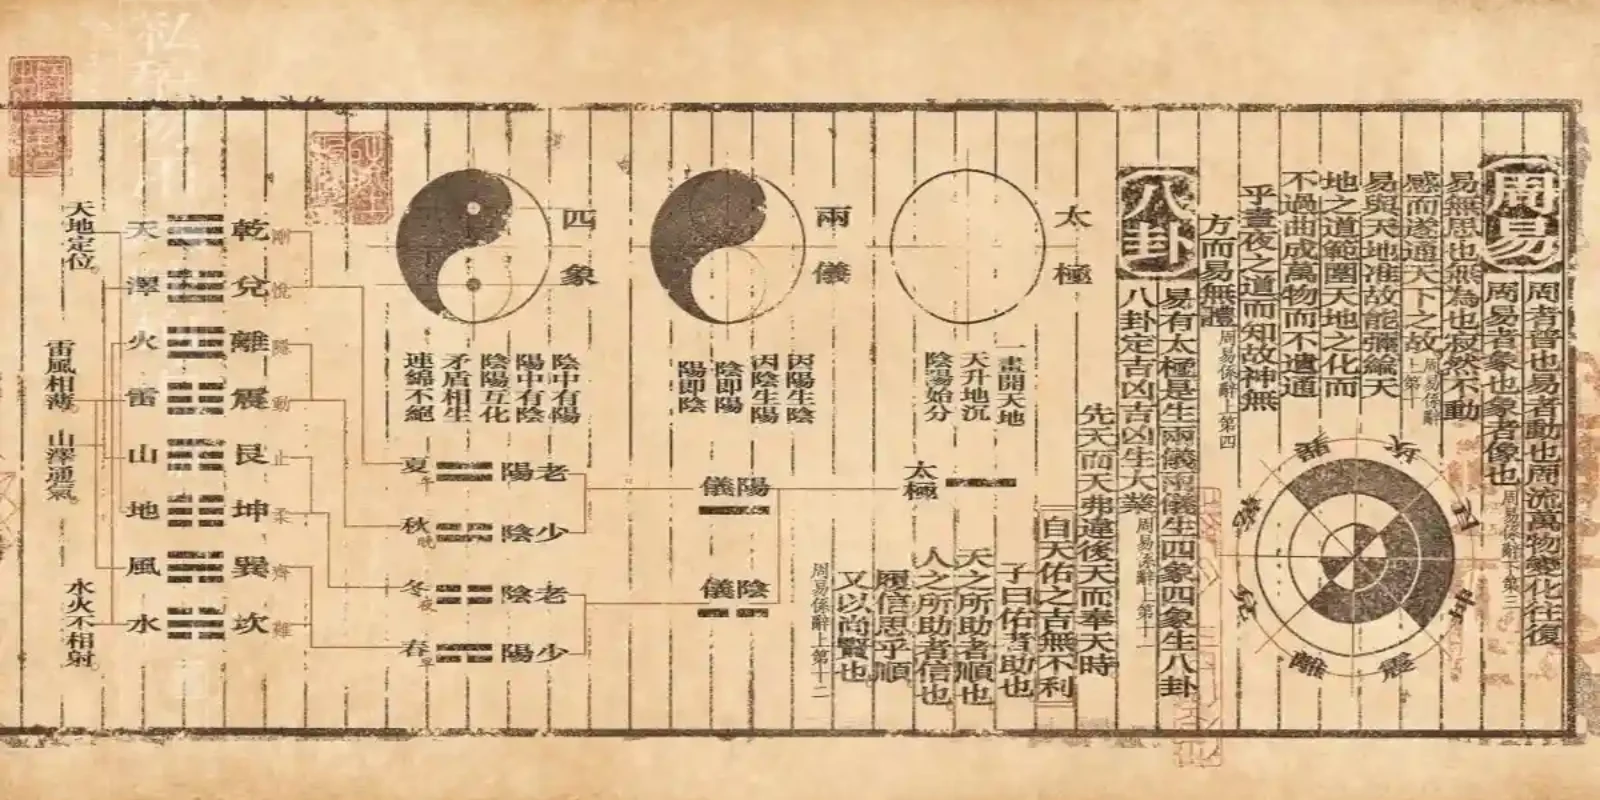 周易
周者普也易者動也周流萬物變化往復
周易者象也象者像也
周易係辭下第三
易無思也無為也寂然不動
感而遂通天下之故
周易係辭上第十
易與天地准故能彌綸天
地之道範圍天地之化而
不過曲成萬物而不遺通
乎晝夜之道而知故神無
方而易無體
周易係辭上第四
坎
艮
坤
震
離
兌
八卦
易有太極是生兩儀兩儀生四象四象生八卦
八卦定吉凶吉凶生大業
周易係辭上第十一
先天而天弗違後天而奉天時
自天佑之吉無不利
子曰佑者助也
天之所助者順也
人之所助者信也
履信思乎順
又以尚賢也
周易係辭上第十二
太極
一畫開天地
天升地沉
陰陽始分
兩儀
因陽生陰
因陰生陽
陰即陽
陽即陰
四象
陰中有陽
陽中有陰
陰陽互化
矛盾相生
連錦不絕
太極
陽儀
陰儀
老陽
夏午
少陰
秋晚
老陰
冬夜
少陽
春早
乾剛
天
兌悅
澤
離隱
火
震動
雷
艮止
山
坤柔
地
巽齊
風
坎難
水
天地定位
雷風相薄
山澤通氣
水火不相射